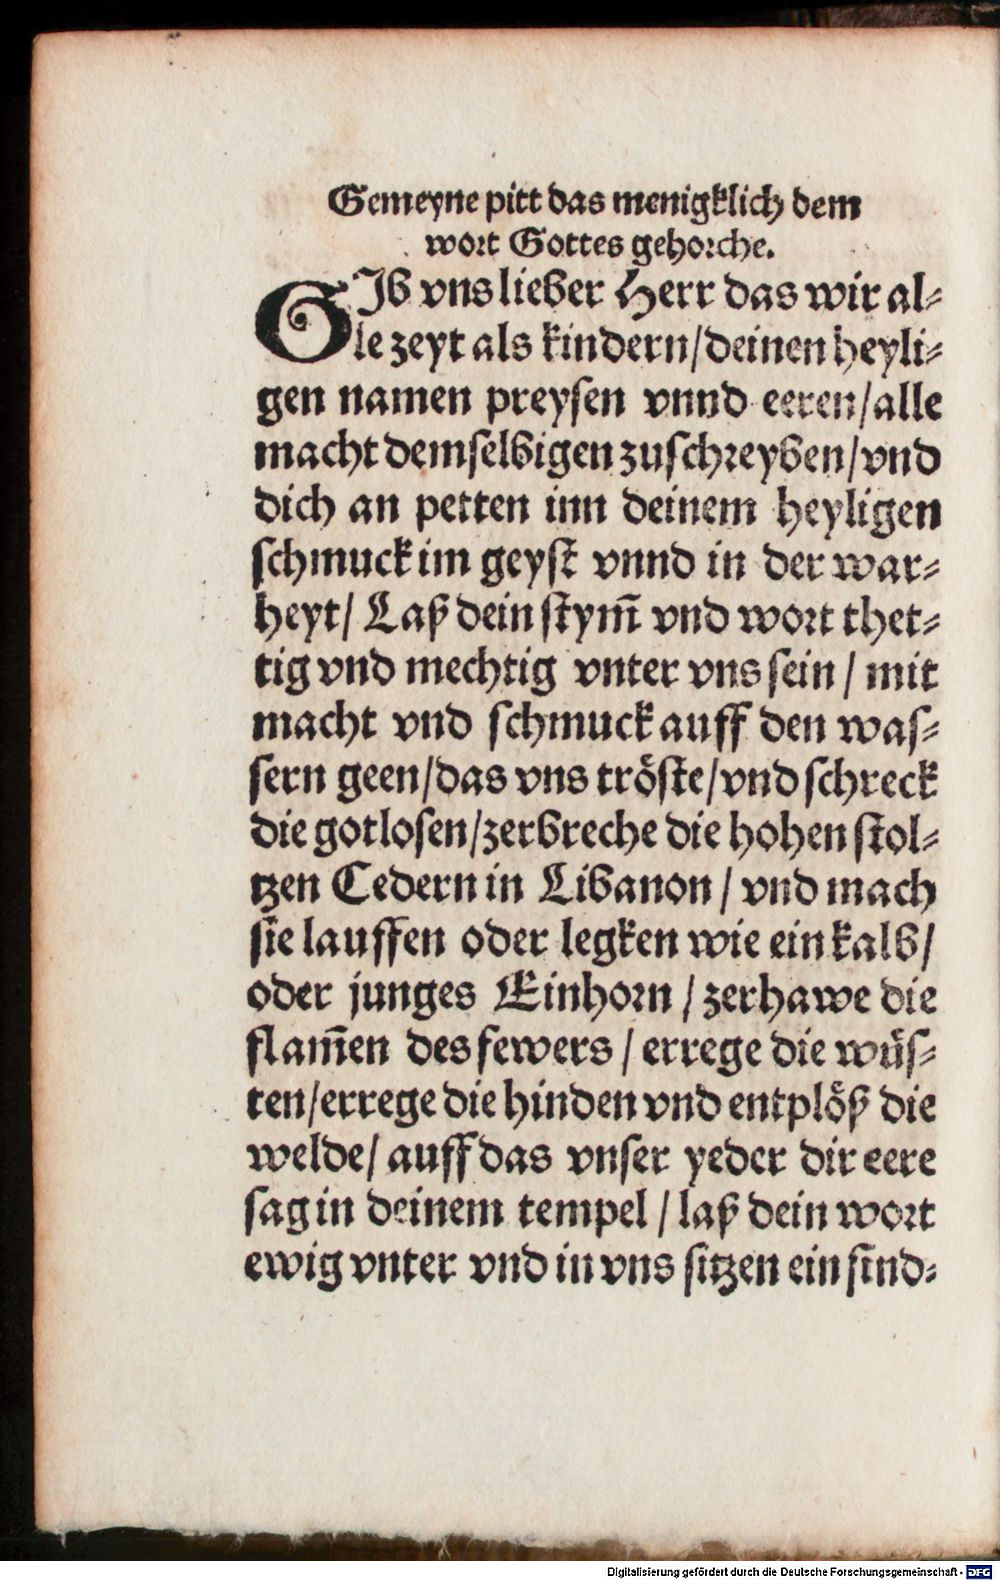 Gemeyne pitt das menigklich dem
wort Gottes gehorche.
GIb vns lieber Herr das wir al⸗
le zeyt als kindern/deinen heyli⸗
gen namen preysen vnnd eeren/alle
macht demselbigen zuschreyben/vnd
dich an petten inn deinem heyligen
schmuck im geyst vnnd in der war⸗
heyt/ Laß dein stym̄ vnd wort thet⸗
tig vnd mechtig vnter vns sein / mit
macht vnd schmuck auff den was⸗
sern geen/das vns tröste/vnd schreck
die gotlosen/zerbreche die hohen stol⸗
tzen Cedern in Libanon / vnd mach
sie lauffen oder legken wie ein kalb/
oder junges Einhorn / zerhawe die
flam̄en des fewers / errege die wüs⸗
ten/errege die hinden vnd entplöß die
welde/ auff das vnser yeder dir eere
sag in deinem tempel / laß dein wort
ewig vnter vnd in vns sitzen ein sind⸗
Digitalisierung gefördert durch die Deutsche Forschungsgemeinschaft - DFG